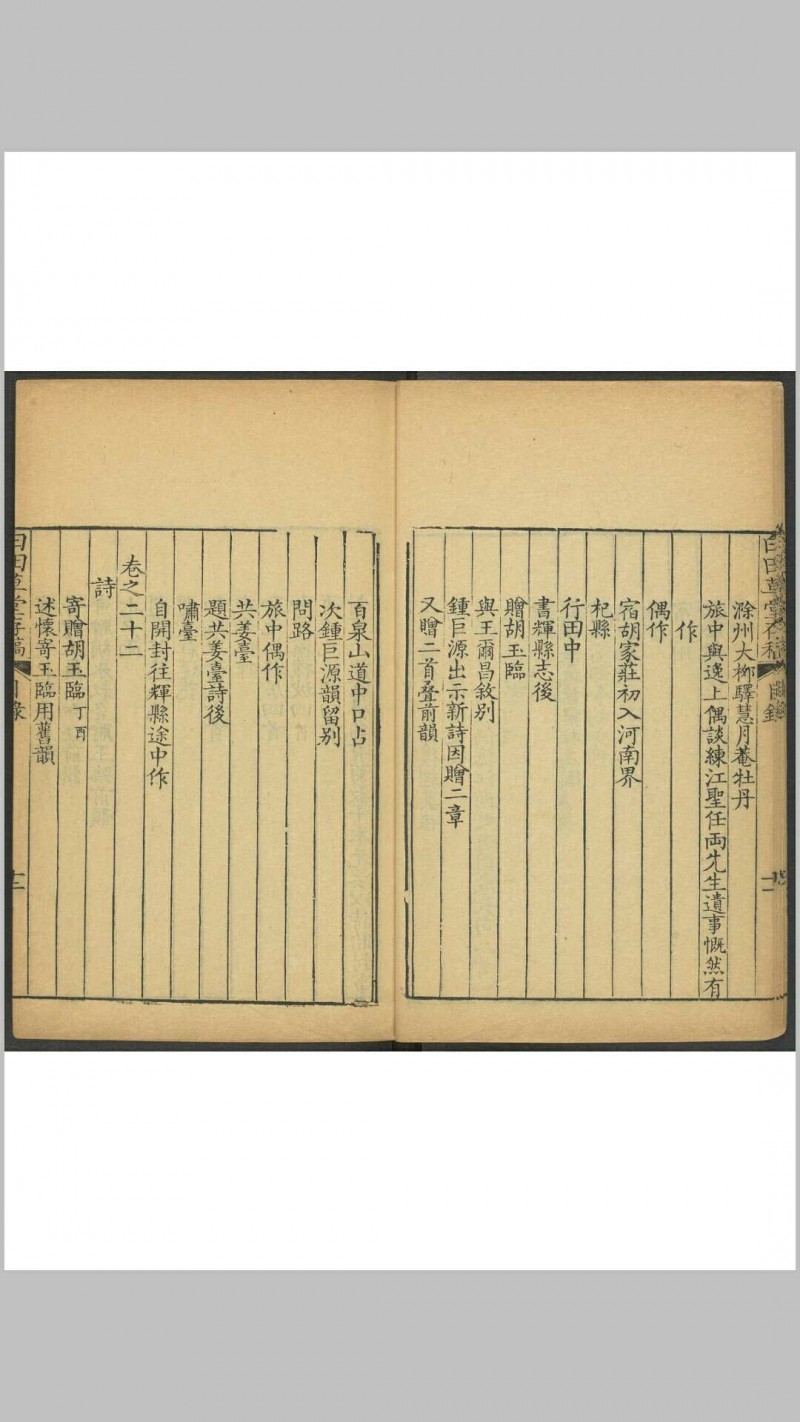 白田草堂存稿 目錄
滁州大柳驛慧月菴牡丹
旅中與逸上偶談練江聖任両先生遺事慨然有
作
偶作
宿胡家莊初入河南界
杞縣
行田中
書輝縣志後
贈胡玉臨
與王爾昌敘别
鍾巨源出示新詩因贈二章
又贈二首叠前韻
百泉山道中口占
次鍾巨源韻留别
問路
旅中偶作
共姜臺
題共姜臺詩後
嘯臺
自開封往輝縣途中作
卷之二十二
詩
寄贈胡玉臨 丁酉
述懷寄玉臨用舊韻
白田草堂存稿 目錄